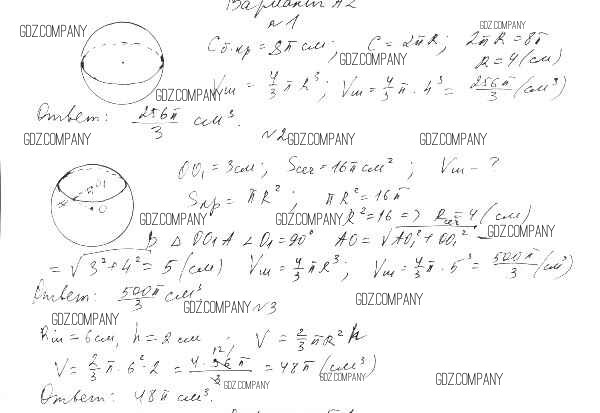 Вариант А2
№1
GDZ.COMPANY GDZ.COMPANY
Cб.кр = 8π см; C = 2πR; 2πR = 8π
GDZ.COMPANY R = 4 (см)
Vш = 4/3 πR³; Vш = 4/3 π · 4³ = 256π/3 (см³)
GDZ.COMPANY
Ответ: 256π/3 см³.
GDZ.COMPANY №2 GDZ.COMPANY GDZ.COMPANY
OO₁ = 3см; Sсеч = 16π см²; Vш - ?
Sкр = πR²; πR² = 16π
GDZ.COMPANY GDZ.COMPANY R² = 16 => Rсеч = 4 (см)
GDZ.COMPANY
В Δ OO₁A ∠O₁ = 90° AO = √AO₁² + OO₁² =
= √3² + 4² = 5 (см) Vш = 4/3 πR³; Vш = 4/3 π · 5³ = 500π/3 (см³)
Ответ: 500π/3 см³
GDZ.COMPANY №3 GDZ.COMPANY
GDZ.COMPANY
Rш = 6см, h = 2 см; V = 2/3 πR² h
V = 2/3 π · 6² · 2 = 4 · 36 π/3 = 48π (см³)
12
GDZ.COMPANY GDZ.COMPANY GDZ.COMPANY
Ответ: 48π см³.